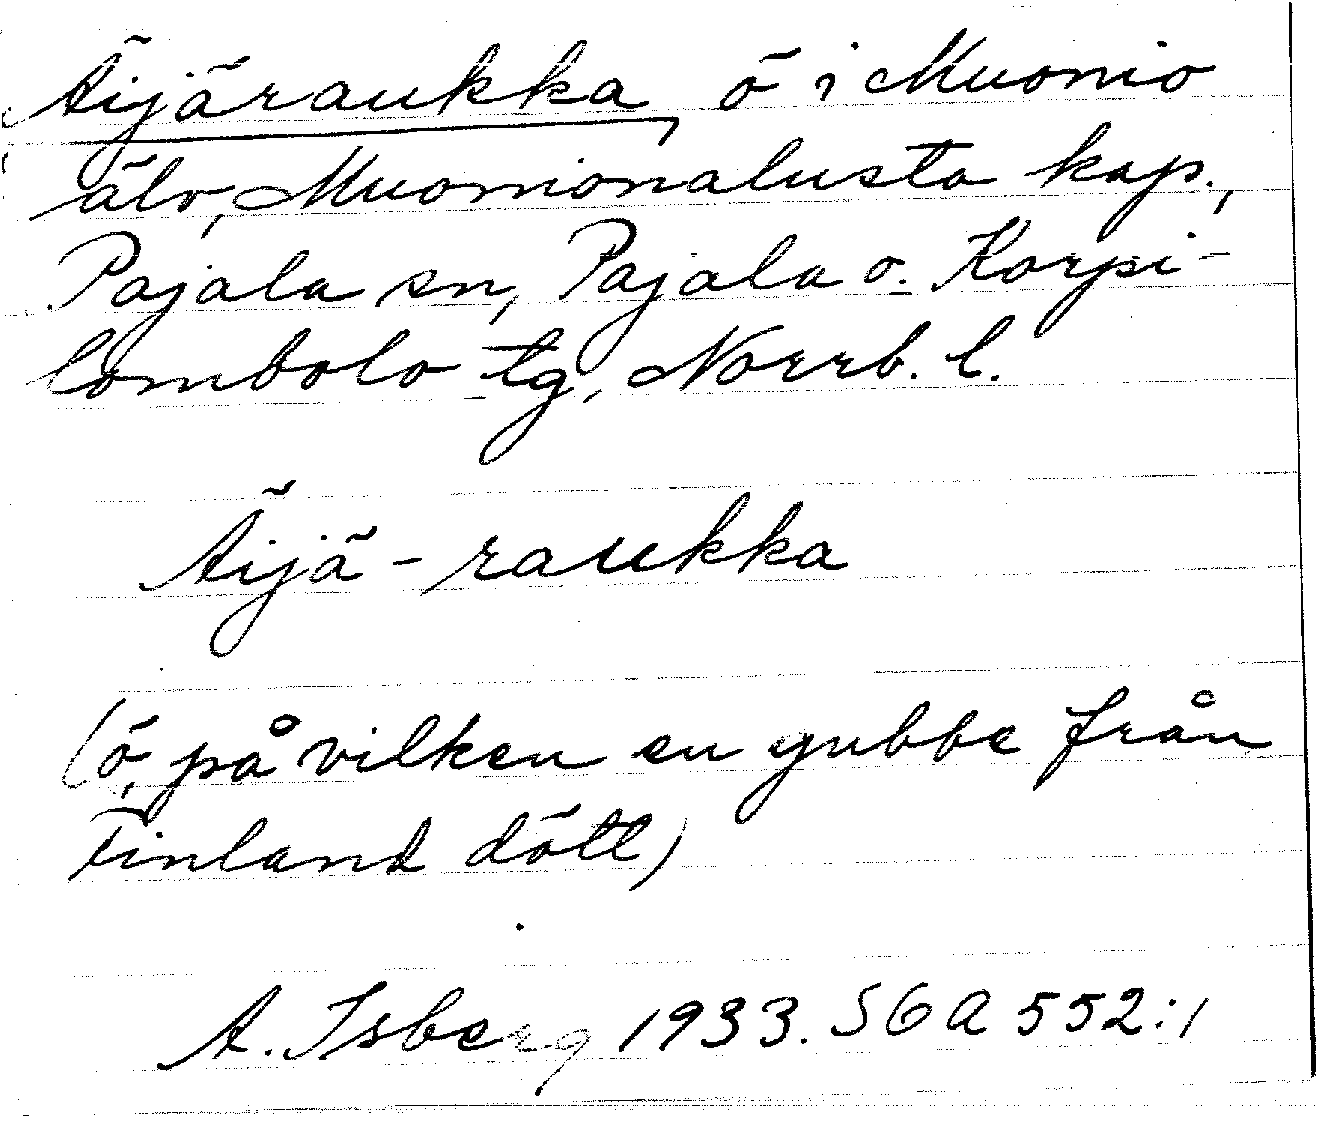 Äijäraukka, ö i Muonio
älv, Muonionalusta kap.,
Pajala sn, Pajala o. Korpi-
lombolo tg, Norrb. l.
Äijä-raukka
(ö, på vilken en gubbe från
Finland dött)
A. Isberg 1933. SGA 552:1